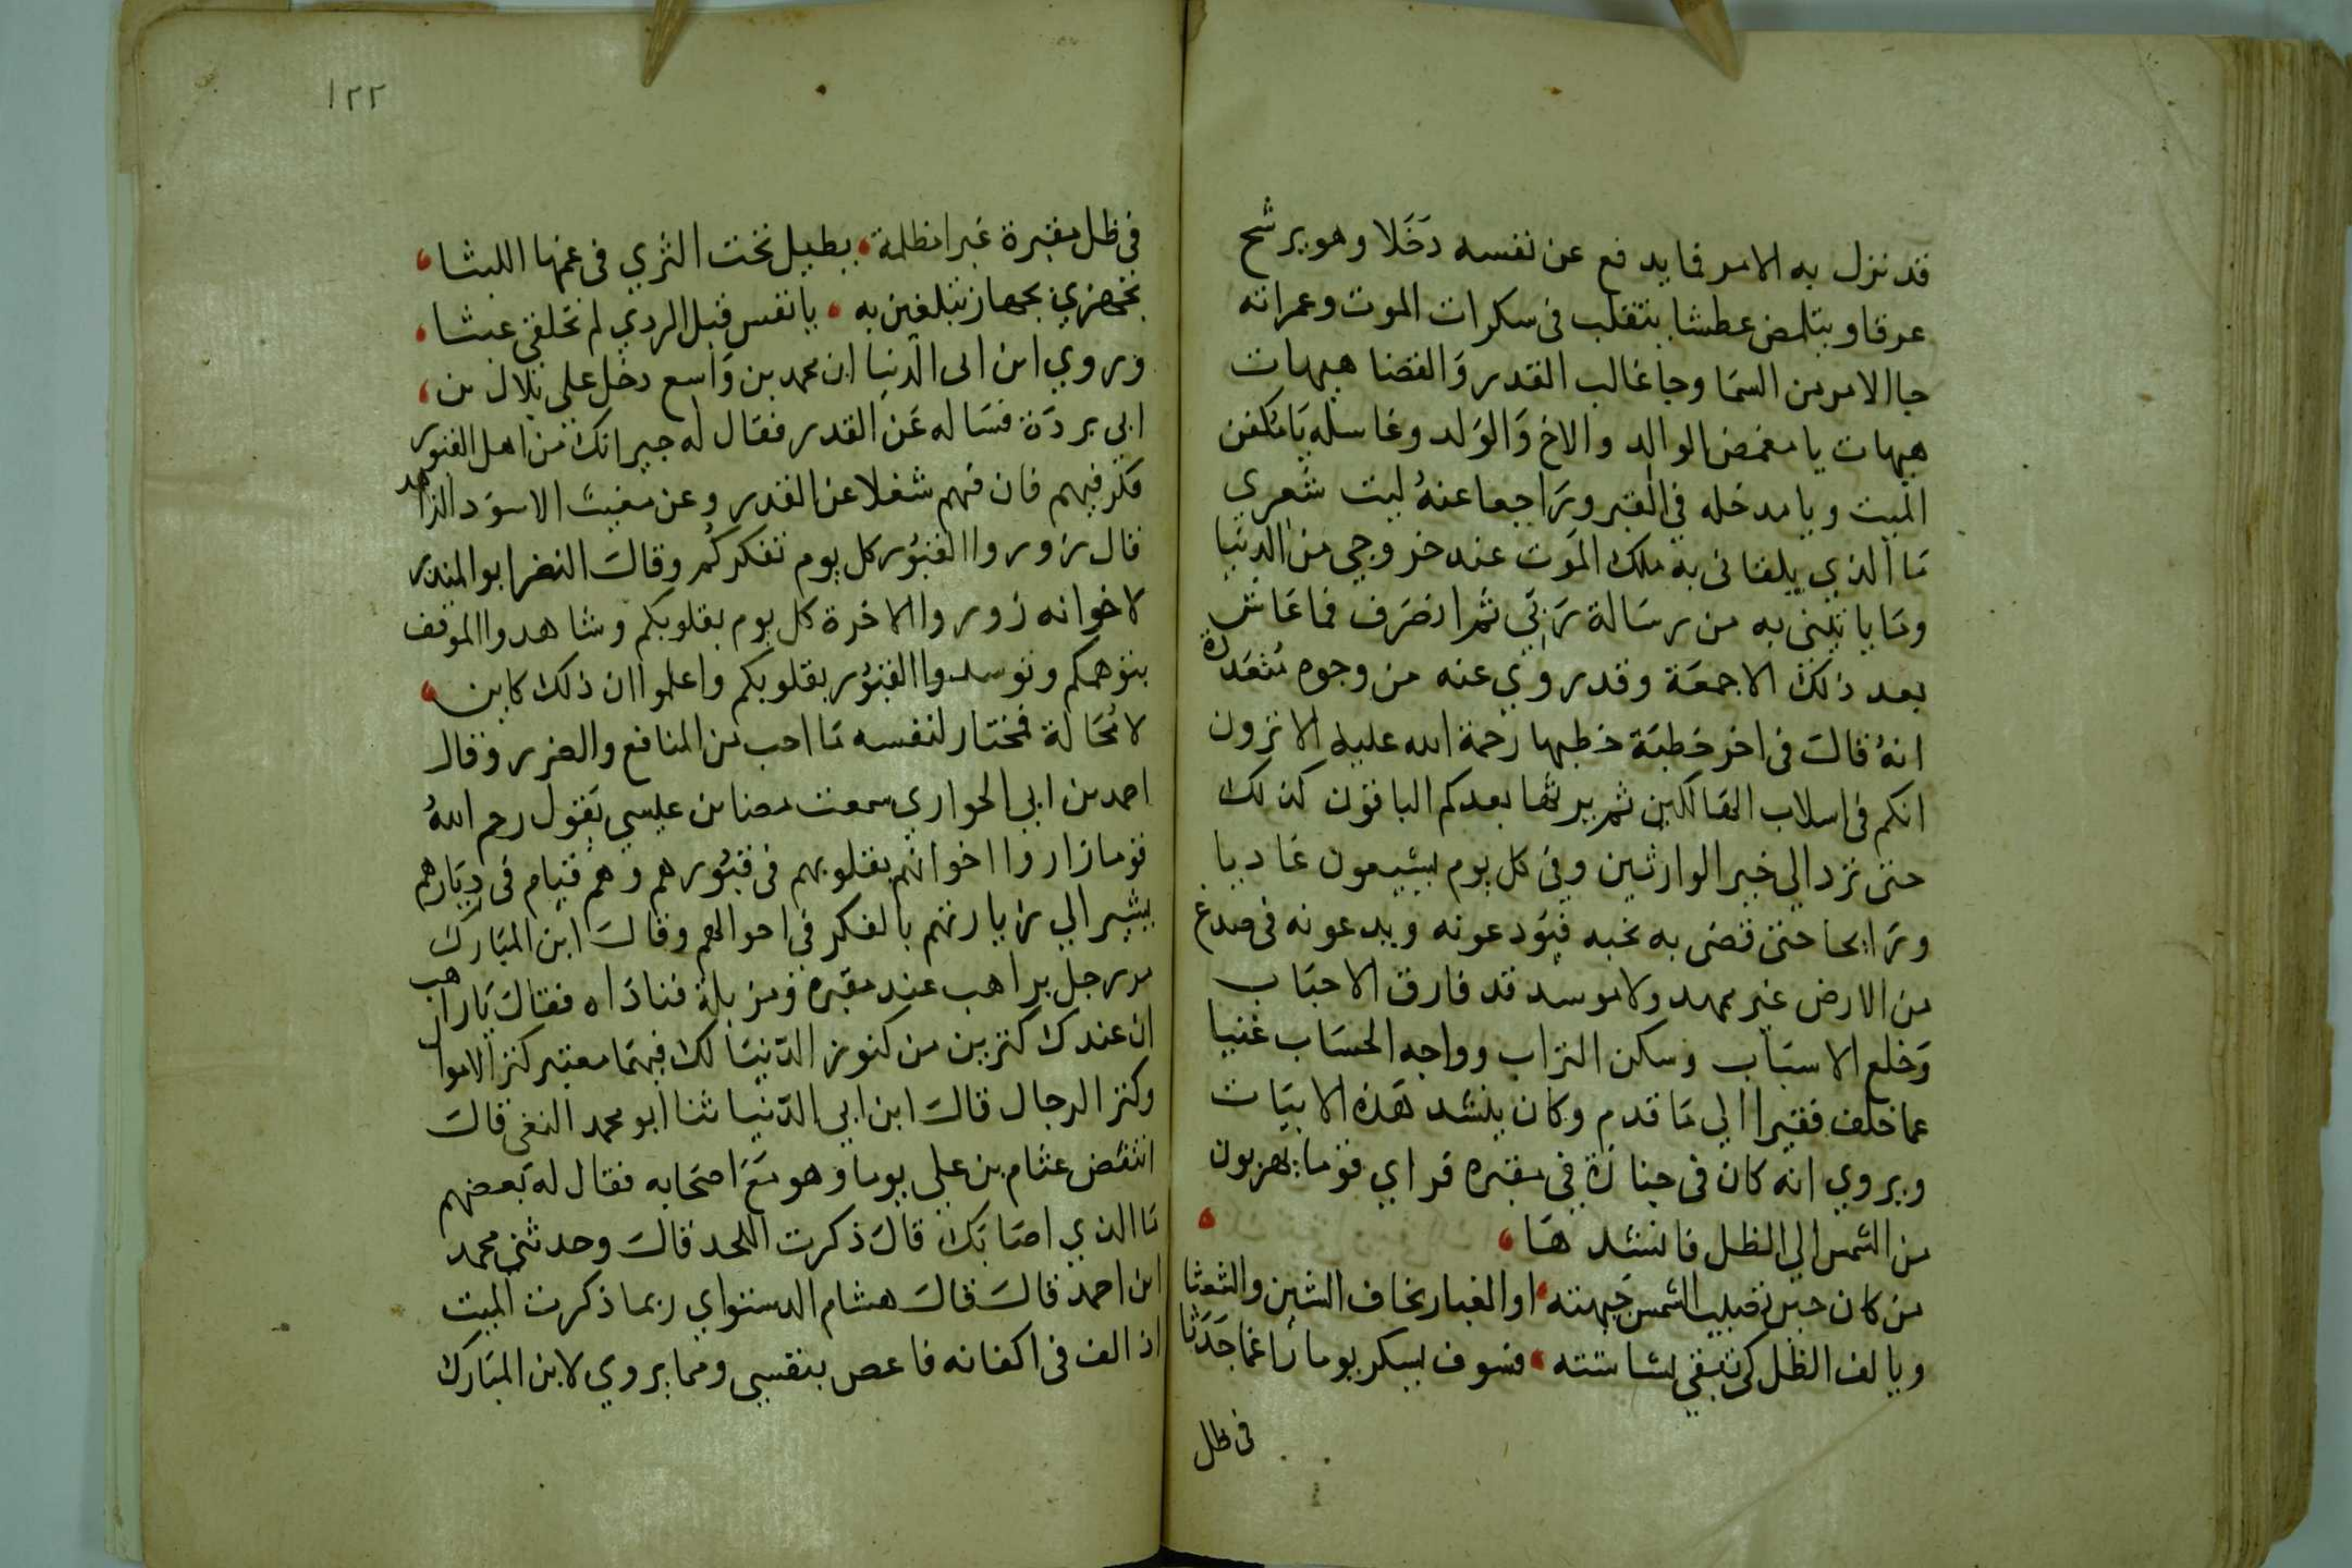 قد نزل به الامر فما يدفع عن نفسه دخلا وهو يرشح
عرقا ويتلمض عطشا يتقلب في سكرات الموت وغمراته
جا الامر من السما وجا غالب القدر والقضا هيهات
هيهات يا مغمض الوالد والاخ والولد وغاسله يا مكفن
الميت ويا مدخله في القبر وراجعا عنه ليت شعري
ما الذي يلقاني به ملك الموت عند خروجي من الدنيا
وما ياتيني به من رسالة ربي ثم انصرف فما عاش
بعد ذلك الا جمعة وقد روي عنه من وجوه متعددة
انه قال في اخر خطبة خطبها رحمة الله عليه الا ترون
انكم في اسلاب الهالكين ثم يرثها بعدكم الباقون كذلك
حتى ترد الي خير الوارثين وفي كل يوم تشيعون غاديا
ورايحا حتى قضى به نحبه فتودعونه وتدعونه في صدع
من الارض غير ممهد ولا موسد قد فارق الاحباب
وخلع الاسباب وسكن التراب وواجه الحساب غنيا
عما خلف فقيرا الي ما قدم وكان ينشد هذه الابيات
ويروي انه كان في جنازة في مقبره فراي قوما يهربون
من الشمس الي الظل فانشد ها
من كان حين تصيب الشمس جبهته او الغبار يخاف الشين والشعثا
ويالف الظل كي تبقي بشاشته فسوف يسكن يوما راغما جدثا
في ظل
١٢٢
في ظل مقبرة غبرا مظلمة يطيل تحت الثري في غمها اللبثا
تجهزي بجهاز تبلغين به يا نفس قبل الردي لم تخلقي عبثا
وروي ابن ابي الدنيا ان محمد بن واسع دخل علي بلال بن
ابي بردة فساله عن القدر فقال له جيرانك من اهل القبور
فكر فيهم فان فيهم شغلا عن القدر وعن مغيث الاسود الزاهد
قال زوروا القبور كل يوم تفكركم وقال النضر ابو المنذر
لاخوانه زوروا الاخرة كل يوم بقلوبكم وشاهدوا الموقف
بتوهمكم وتوسدوا القبور بقلوبكم واعلموا ان ذلك كاين
لا محالة فمختار لنفسه ما احب من المنافع والضرر وقال
احمد بن ابي الحواري سمعت مضا بن عيسي يقول رحم الله
قوما زاروا اخوانهم بقلوبهم في قبورهم وهم قيام في ديارهم
يشير الي زيارتهم بالفكر في احوالهم وقال ابن المبارك
مر رجل براهب عند مقبره ومزبلة فناداه فقال يا راهب
ان عندك كنزين من كنوز الدنيا لك فيهما معتبر كنز الاموال
وكنز الرجال قال ابن ابي الدنيا ثنا ابو محمد قال
انتفض عثام بن علي يوما وهو مع اصحابه فقال له بعضهم
ما الذي اصابك قال ذكرت اللحد قال وحدثني محمد
ابن احمد قال قال هشام الدستواي ربما ذكرت الميت
اذ الف في اكفانه فاغص بنفسي ومما يروي لابن المبارك